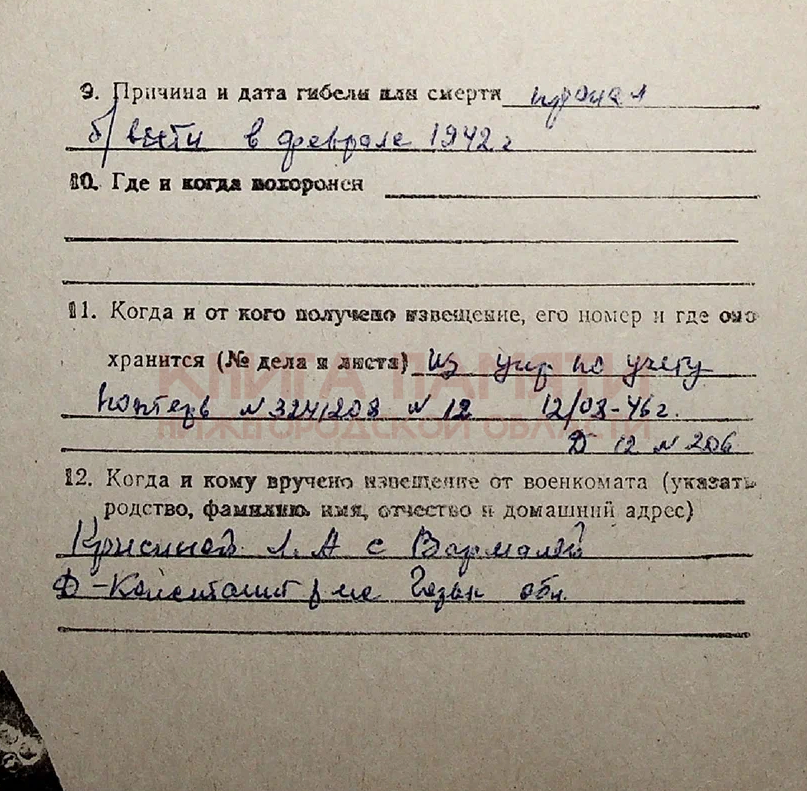 9. Причина и дата гибели или смерти пропал
б/вести в феврале 1942 г
10. Где и когда похоронен
11. Когда и от кого получено извещение, его номер и где оно
хранится (№ дела и листа) Из упр по учету
потерь N 3241208 N 12 12/08-46 г.
Д 12 N 206
КНИГА ПАМЯТИ
НИЖЕГОРОДСКОЙ ОБЛАСТИ
12. Когда и кому вручено извещение от военкомата (указать
родство, фамилию, имя, отчество и домашний адрес)
Л. А с Вармалей
Д-Констант обл.